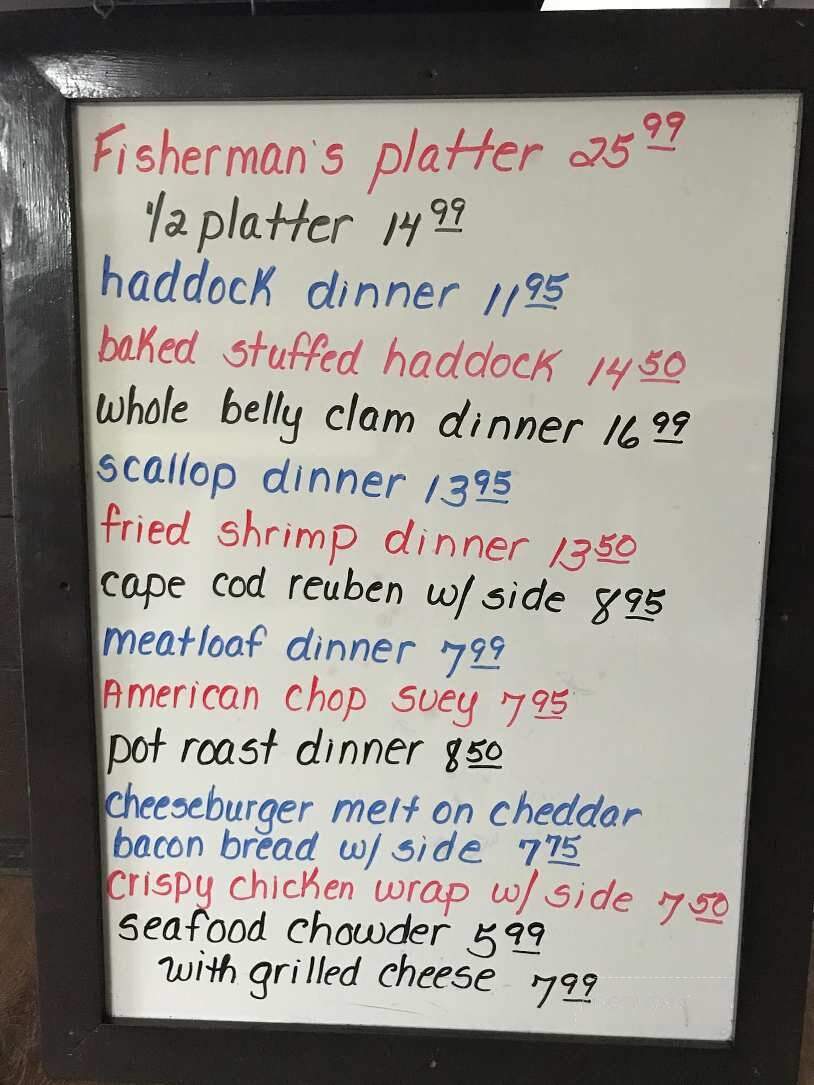 Fisherman's platter 25 99
1/2 platter 14 99
haddock dinner 11 95
baked stuffed haddock 14 50
whole belly clam dinner 16 99
scallop dinner 13 95
fried shrimp dinner 13 50
cape cod reuben w/ side 8 95
meatloaf dinner 7 99
American chop suey 7 95
pot roast dinner 8 50
cheeseburger melt on cheddar
bacon bread w/ side 7 75
crispy chicken wrap w/ side 7 50
seafood chowder 5 99
with grilled cheese 7 99